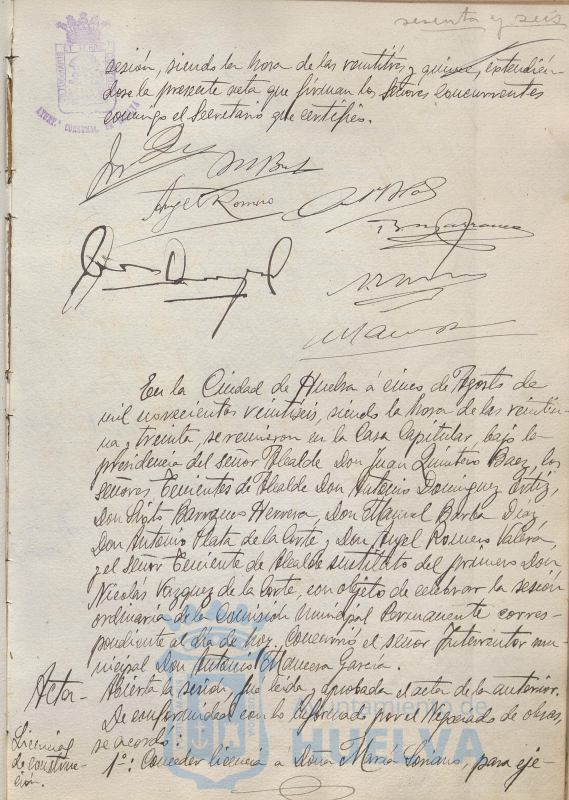 sesenta y seis
sesión, siendo la hora de las veintitrés y quince, extendién-
dose la presente acta que firman los señores concurrentes
conmigo el Secretario que certifico.
Angel Romero
En la Ciudad de Huelva á cinco de Agosto de
mil novecientos veintiseis, siendo la hora de las veintiu-
na y treinta, se reunieron en la Casa Capitular, bajo la
presidencia del señor Alcalde Don Juan Quintero Baez, los
señores Tenientes de Alcalde Don Antonio Dominguez Ortiz,
Don Sixto Barranco Herrera, Don Manuel Barba Diaz,
Don Antonio Plata de la Corte y Don Angel Romero Valera
y el señor Teniente de Alcalde sustituto del primero Don
Nicolás Vazquez de la Corte, con objeto de celebrar la sesión
ordinaria de la Comisión Municipal Permanente corres-
pondiente al día de hoy. Concurrió el señor Interventor mu-
nicipal Don Antonio Mancera Garcia.
Acta- Abierta la sesión, fue leida y aprobada el acta de la anterior.
De conformidad con lo informado por el Negociado de obras,
se acordó:
Licencias
de construc-
ción.
1º: Conceder licencia á Doña María Soriano, para eje-
Ayuntamiento de
HUELVA